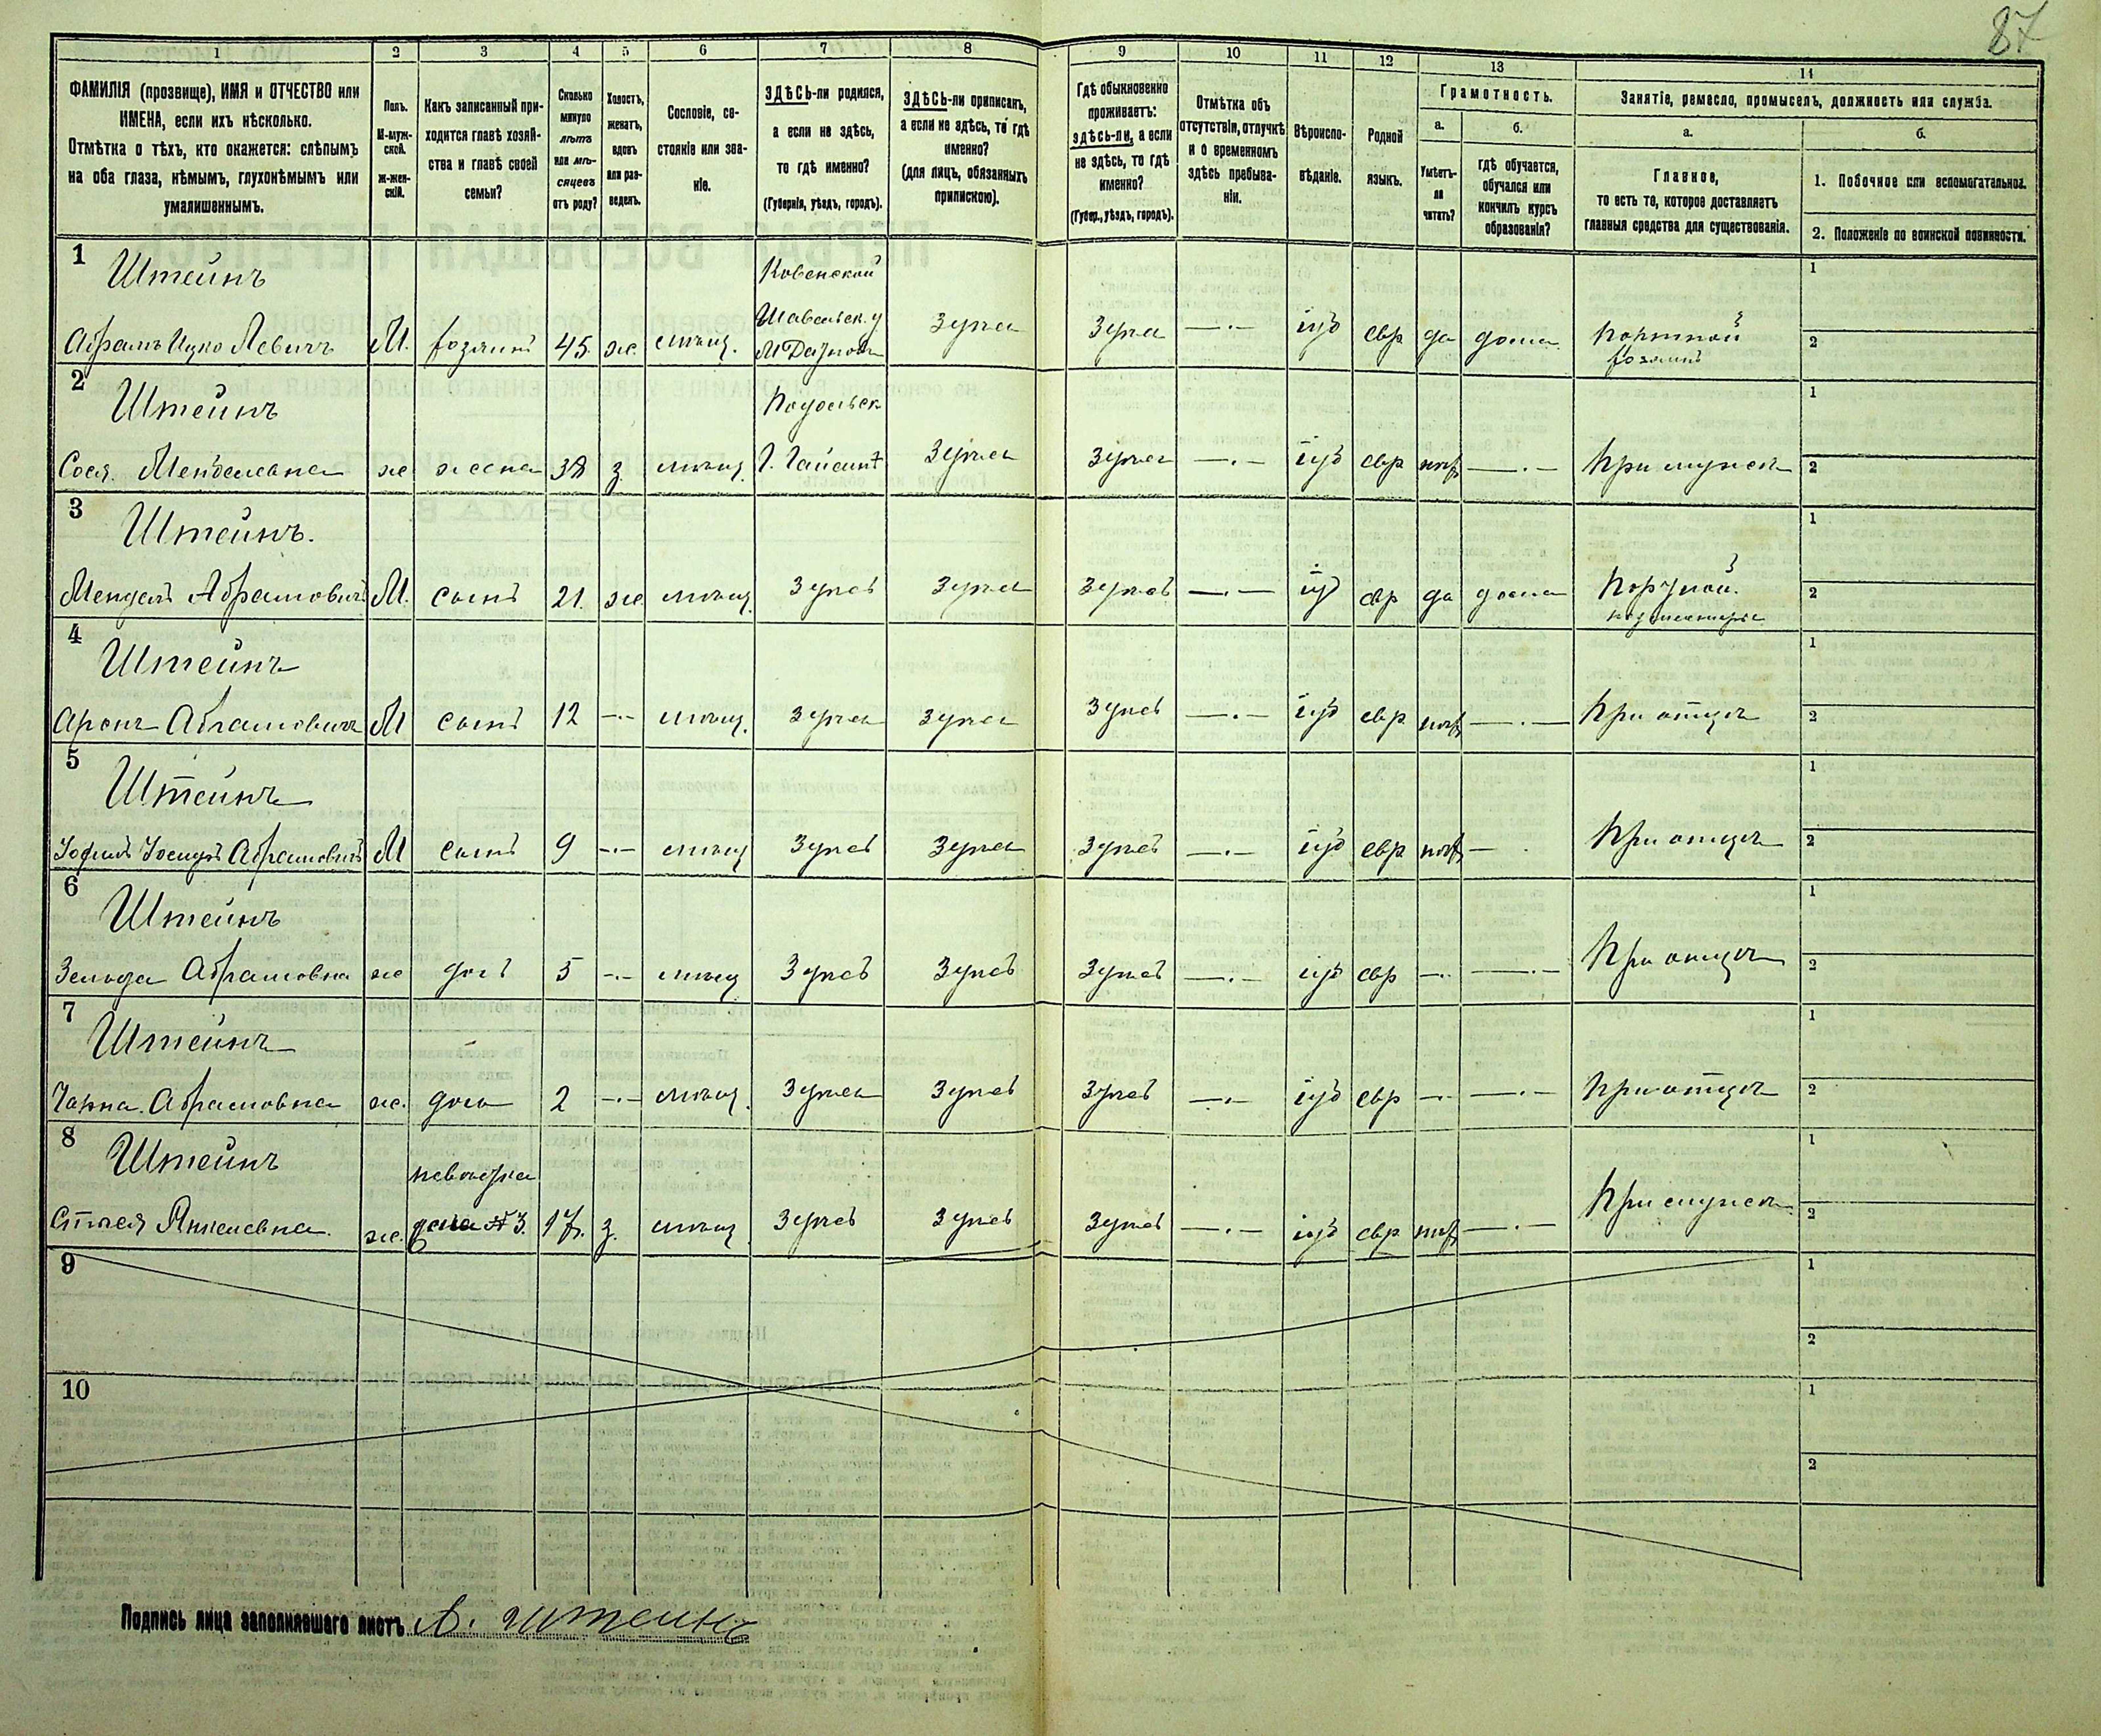 87
1 2 3 4 5 6 7 8 9 10 11 12 13 14
ФАМИЛІЯ (прозвище), ИМЯ и ОТЧЕСТВО или
ИМЕНА, если ихъ нѣсколько.
Отмѣтка о тѣхъ, кто окажется: слѣпымъ
на оба глаза, нѣмымъ, глухонѣмымъ или
умалишеннымъ.
Полъ.
М-муж-
ской.
Ж-жен-
скій.
Какъ записанный при-
ходится главѣ хозяй-
ства и главѣ своей
семьи?
Сколько
минуло
лѣтъ
или мѣ-
сяцевъ
отъ роду?
Холостъ,
женатъ,
вдовъ
или раз-
веденъ.
Сословіе, со-
стояніе или зва-
ніе.
ЗДѢСЬ-ли родился,
а если не здѣсь,
то гдѣ именно?
(Губернія, уѣздъ, городъ).
ЗДѢСЬ-ли приписанъ,
а если не здѣсь, то гдѣ
именно?
(для лицъ, обязанныхъ
припискою).
Гдѣ обыкновенно
проживаетъ:
здѣсь-ли, а если
не здѣсь, то гдѣ
именно?
(Губер., уѣздъ, городъ).
Отмѣтка объ
отсутствіи, отлучкѣ
и о временномъ
здѣсь пребыва-
ніи.
Вѣроиспо-
вѣданіе.
Родной
языкъ.
Грамотность.
а.
Умѣетъ-
ли
читать?
б.
гдѣ обучается,
обучался или
кончилъ курсъ
образованія?
Занятіе, ремесло, промыселъ, должность или служба.
а.
Главное,
то есть то, которое доставляетъ
главныя средства для существованія.
б.
1. Побочное или вспомогательное.
2. Положеніе по воинской повинности.
1 Штейнъ Ковенской 1
Шавельск. у
Абрамъ Ицко Левичъ М. хозяинъ 45. ж. мѣщ. М здѣсь здѣсь —·— іуд евр да дома портной 2
хозяинъ
2 Штейнъ Подольск 1
Сося Менделевна ж жена 38 з. мѣщ. Г. Гайсинѣ здѣсь здѣсь —·— іуд евр нѣт —·— При мужѣ 2
3 Штейнъ. 1
Мендель Абрамовичъ М. сынъ 21. ж. мѣщ. здѣсь здѣсь здѣсь —·— іуд евр да дома Портной 2
подмастерье
4 Штейнъ 1
Аронъ Абрамовичъ М сынъ 12 —·— мѣщ. здѣсь здѣсь здѣсь —·— іуд евр нѣт —·— При отцѣ 2
5 Штейнъ 1
Іосифъ Абрамовичъ М сынъ 9 —·— мѣщ здѣсь здѣсь здѣсь —·— іуд евр нѣт — · При отцѣ 2
6 Штейнъ 1
Зельда Абрамовна ж дочь 5 —·— мѣщ здѣсь здѣсь здѣсь —·— іуд евр —·— —·— При отцѣ 2
7 Штейнъ 1
Чарна Абрамовна ж. дочь 2 —·— мѣщ. здѣсь здѣсь здѣсь —·— іуд евр —·— —·— При отцѣ 2
8 Штейнъ невѣстка 1
Янкелевна. ж. № 3. 17. з. мѣщ здѣсь здѣсь здѣсь —·— іуд евр нѣт —·— При мужѣ 2
9 1
2
10 1
2
Подпись лица заполнявшаго листъ А. Штейнъ